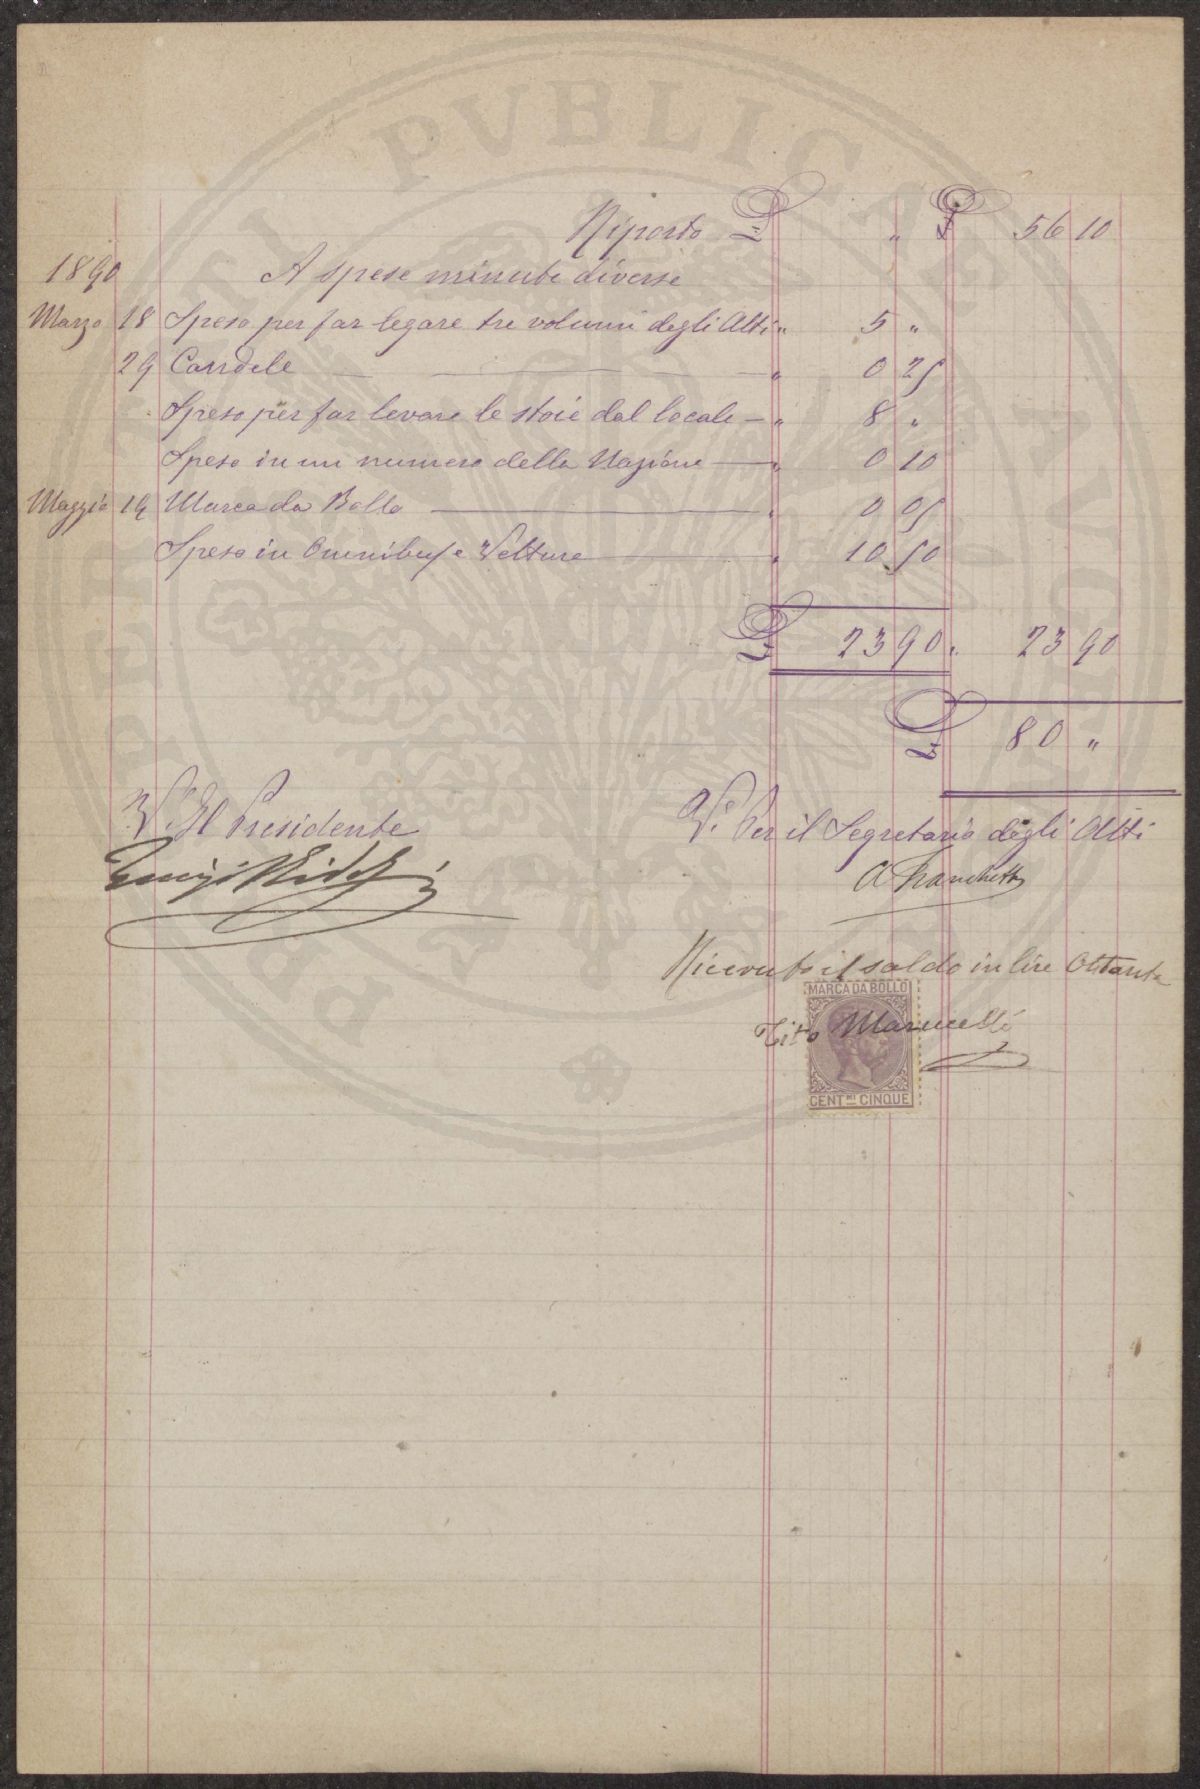 Riporto L. " L. 56 10
1890 A spese minute diverse
Marzo 18 Speso per far legare tre volumi degli Atti " 5 "
29 Candele " 0 25
Speso per far levare le stoie dal locale — " 8 "
Speso in un numero della Nazione — " 0 10
Maggio 14 Marca da Bollo — " 0 05
Speso in Omnibus e Vetture " 10 50
L. 23 90 " 23 90
L. 80 "
V. Il Presidente
V. Per il Segretario degli Atti
Luigi Ridolfi
A Franchetti
Ricevuto il saldo in lire Ottanta
MARCA DA BOLLO
Tito Marucelli
CENT.MI CINQUE
PUBLICAE